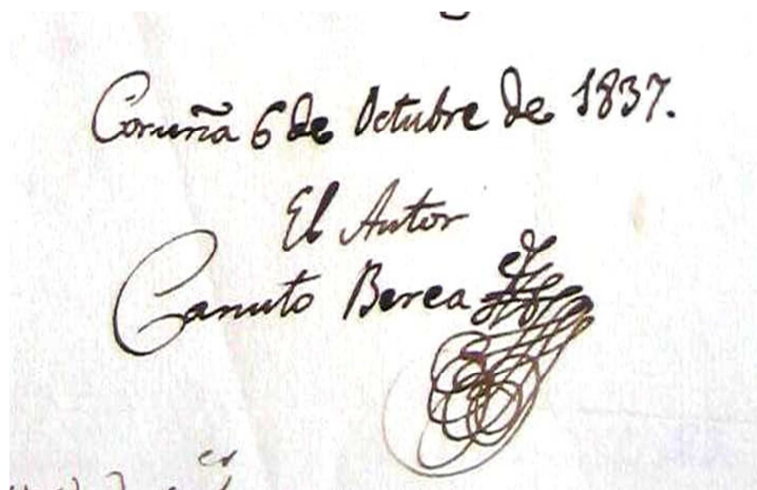 Coruña 6 de Octubre de 1837.
El Autor
Canuto Berea